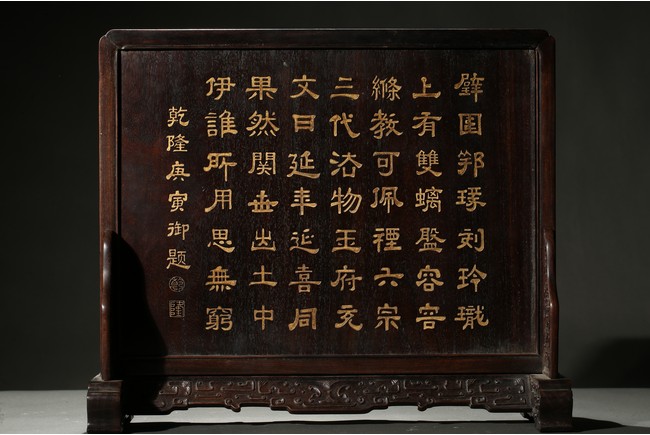 璧圍郛琢刻玲瓏
上有雙螭盤容容
絛教可佩禋六宗
三代法物玉府充
文曰延年延喜同
果然閱世出土中
伊誰所用思無窮
乾隆庚寅御題